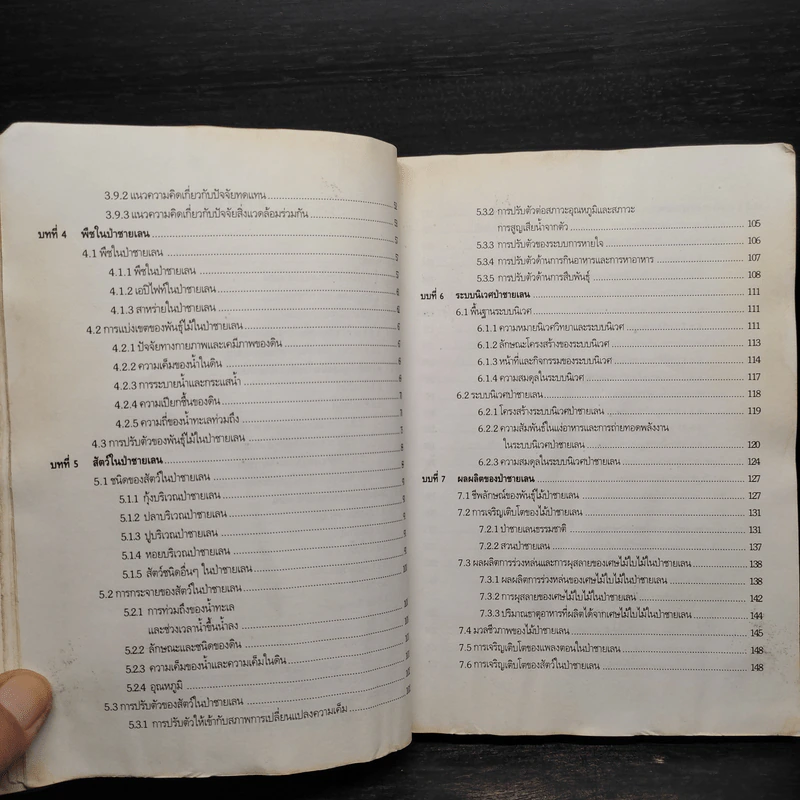 3.9.2 แนวความคิดเกี่ยวกับปัจจัยทดแทน
3.9.3 แนวความคิดเกี่ยวกับปัจจัยสิ่งแวดล้อมร่วมกัน
บทที่ 4 พืชในป่าชายเลน
4.1 พืชในป่าชายเลน
4.1.1 พืชในป่าชายเลน
4.1.2 เอปิไฟท์ในป่าชายเลน
4.1.3 สาหร่ายในป่าชายเลน
4.2 การแบ่งเขตของพันธุ์ไม้ในป่าชายเลน
4.2.1 ปัจจัยทางกายภาพและเคมีภาพของดิน
4.2.2 ความเค็มของน้ำในดิน
4.2.3 การระบายน้ำและกระแสน้ำ
4.2.4 ความเปียกชื้นของดิน
4.2.5 ความถี่ของน้ำทะเลท่วมถึง
4.3 การปรับตัวของพันธุ์ไม้ในป่าชายเลน
บทที่ 5 สัตว์ในป่าชายเลน
5.1 ชนิดของสัตว์ในป่าชายเลน
5.1.1 กุ้งบริเวณป่าชายเลน
5.1.2 ปลาบริเวณป่าชายเลน
5.1.3 ปูบริเวณป่าชายเลน
5.1.4 หอยบริเวณป่าชายเลน
5.1.5 สัตว์ชนิดอื่นๆ ในป่าชายเลน
5.2 การกระจายของสัตว์ในป่าชายเลน
5.2.1 การท่วมถึงของน้ำทะเล
และช่วงเวลาน้ำขึ้นน้ำลง
5.2.2 ลักษณะและชนิดของดิน
5.2.3 ความเค็มของน้ำและความเค็มในดิน
5.2.4 อุณหภูมิ
5.3 การปรับตัวของสัตว์ในป่าชายเลน
5.3.1 การปรับตัวให้เข้ากับสภาพการเปลี่ยนแปลงความเค็ม
5.3.2 การปรับตัวต่อสภาวะอุณหภูมิและสภาวะ
การสูญเสียน้ำจากตัว 105
5.3.3 การปรับตัวของระบบการหายใจ 106
5.3.4 การปรับตัวด้านการกินอาหารและการหาอาหาร 107
5.3.5 การปรับตัวด้านการสืบพันธุ์ 108
บบที่ 6 ระบบนิเวศป่าชายเลน 111
6.1 พื้นฐานระบบนิเวศ
6.1.1 ความหมายนิเวศวิทยาและระบบนิเวศ 111
6.1.2 ลักษณะโครงสร้างของระบบนิเวศ 113
6.1.3 หน้าที่และกิจกรรมของระบบนิเวศ 114
6.1.4 ความสมดุลในระบบนิเวศ 117
6.2 ระบบนิเวศป่าชายเลน 118
6.2.1 โครงสร้างระบบนิเวศป่าชายเลน 119
6.2.2 ความสัมพันธ์ในแง่อาหารและการถ่ายทอดพลังงาน
ในระบบนิเวศป่าชายเลน 120
6.2.3 ความสมดุลในระบบนิเวศป่าชายเลน 124
บบที่ 7 ผลผลิตของป่าชายเลน 127
7.1 ชีพลักษณ์ของพันธุ์ไม้ป่าชายเลน 127
7.2 การเจริญเติบโตของไม้ป่าชายเลน 131
7.2.1 ป่าชายเลนธรรมชาติ 131
7.2.2 สวนป่าชายเลน 137
7.3 ผลผลิตการร่วงหล่นและการผุสลายของเศษไม้ใบไม้ในป่าชายเลน 138
7.3.1 ผลผลิตการร่วงหล่นของเศษไม้ใบไม้ในป่าชายเลน 138
7.3.2 การผุสลายของเศษไม้ใบไม้ในป่าชายเลน 142
7.3.3 ปริมาณธาตุอาหารที่ผลิตได้จากเศษไม้ใบไม้ในป่าชายเลน 144
7.4 มวลชีวภาพของไม้ป่าชายเลน 145
7.5 การเจริญเติบโตของแพลงตอนในป่าชายเลน 148
7.6 การเจริญเติบโตของสัตว์ในป่าชายเลน 148